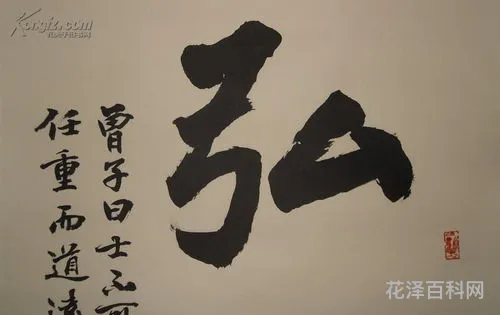 Kongfz.com
孔夫子旧书网
弘
曾子曰士不可
任重而道遠
花泽百科网